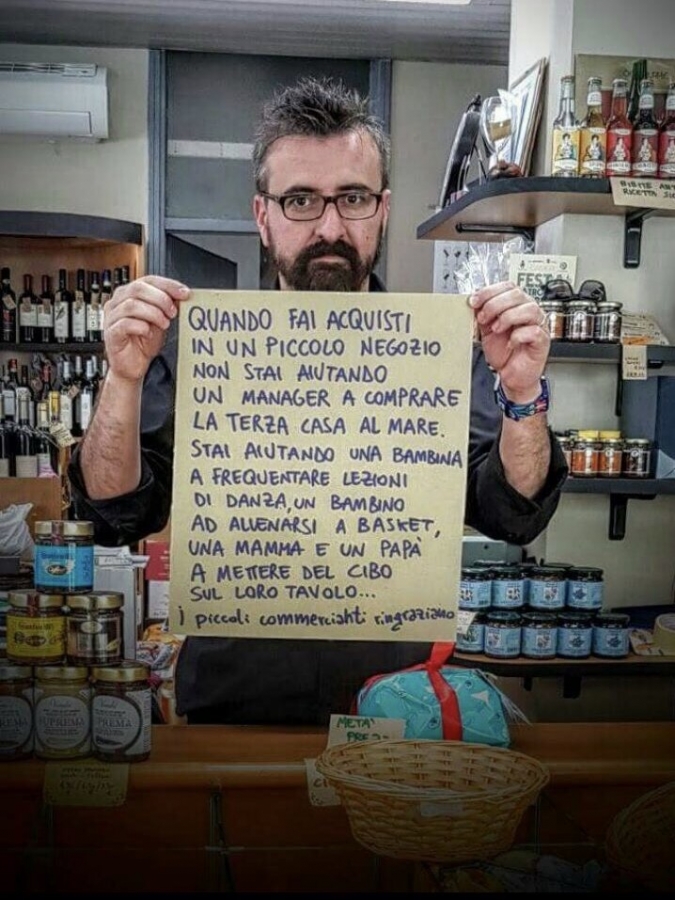 QUANDO FAI ACQUISTI
IN UN PICCOLO NEGOZIO
NON STAI AIUTANDO
UN MANAGER A COMPRARE
LA TERZA CASA AL MARE.
STAI AIUTANDO UNA BAMBINA
A FREQUENTARE LEZIONI
DI DANZA, UN BAMBINO
AD ALLENARSI A BASKET,
UNA MAMMA E UN PAPÀ
A METTERE DEL CIBO
SUL LORO TAVOLO...
i piccoli commercianti ringraziano
FESTA
SUPREMA
SUPREMA
META'